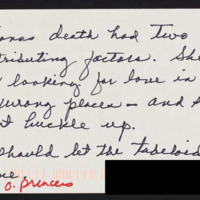 anas death had two
tributing factors. She
looking for love in
wrong places - and s
t buckle up.
should let the tabloid
ne.
o. princess